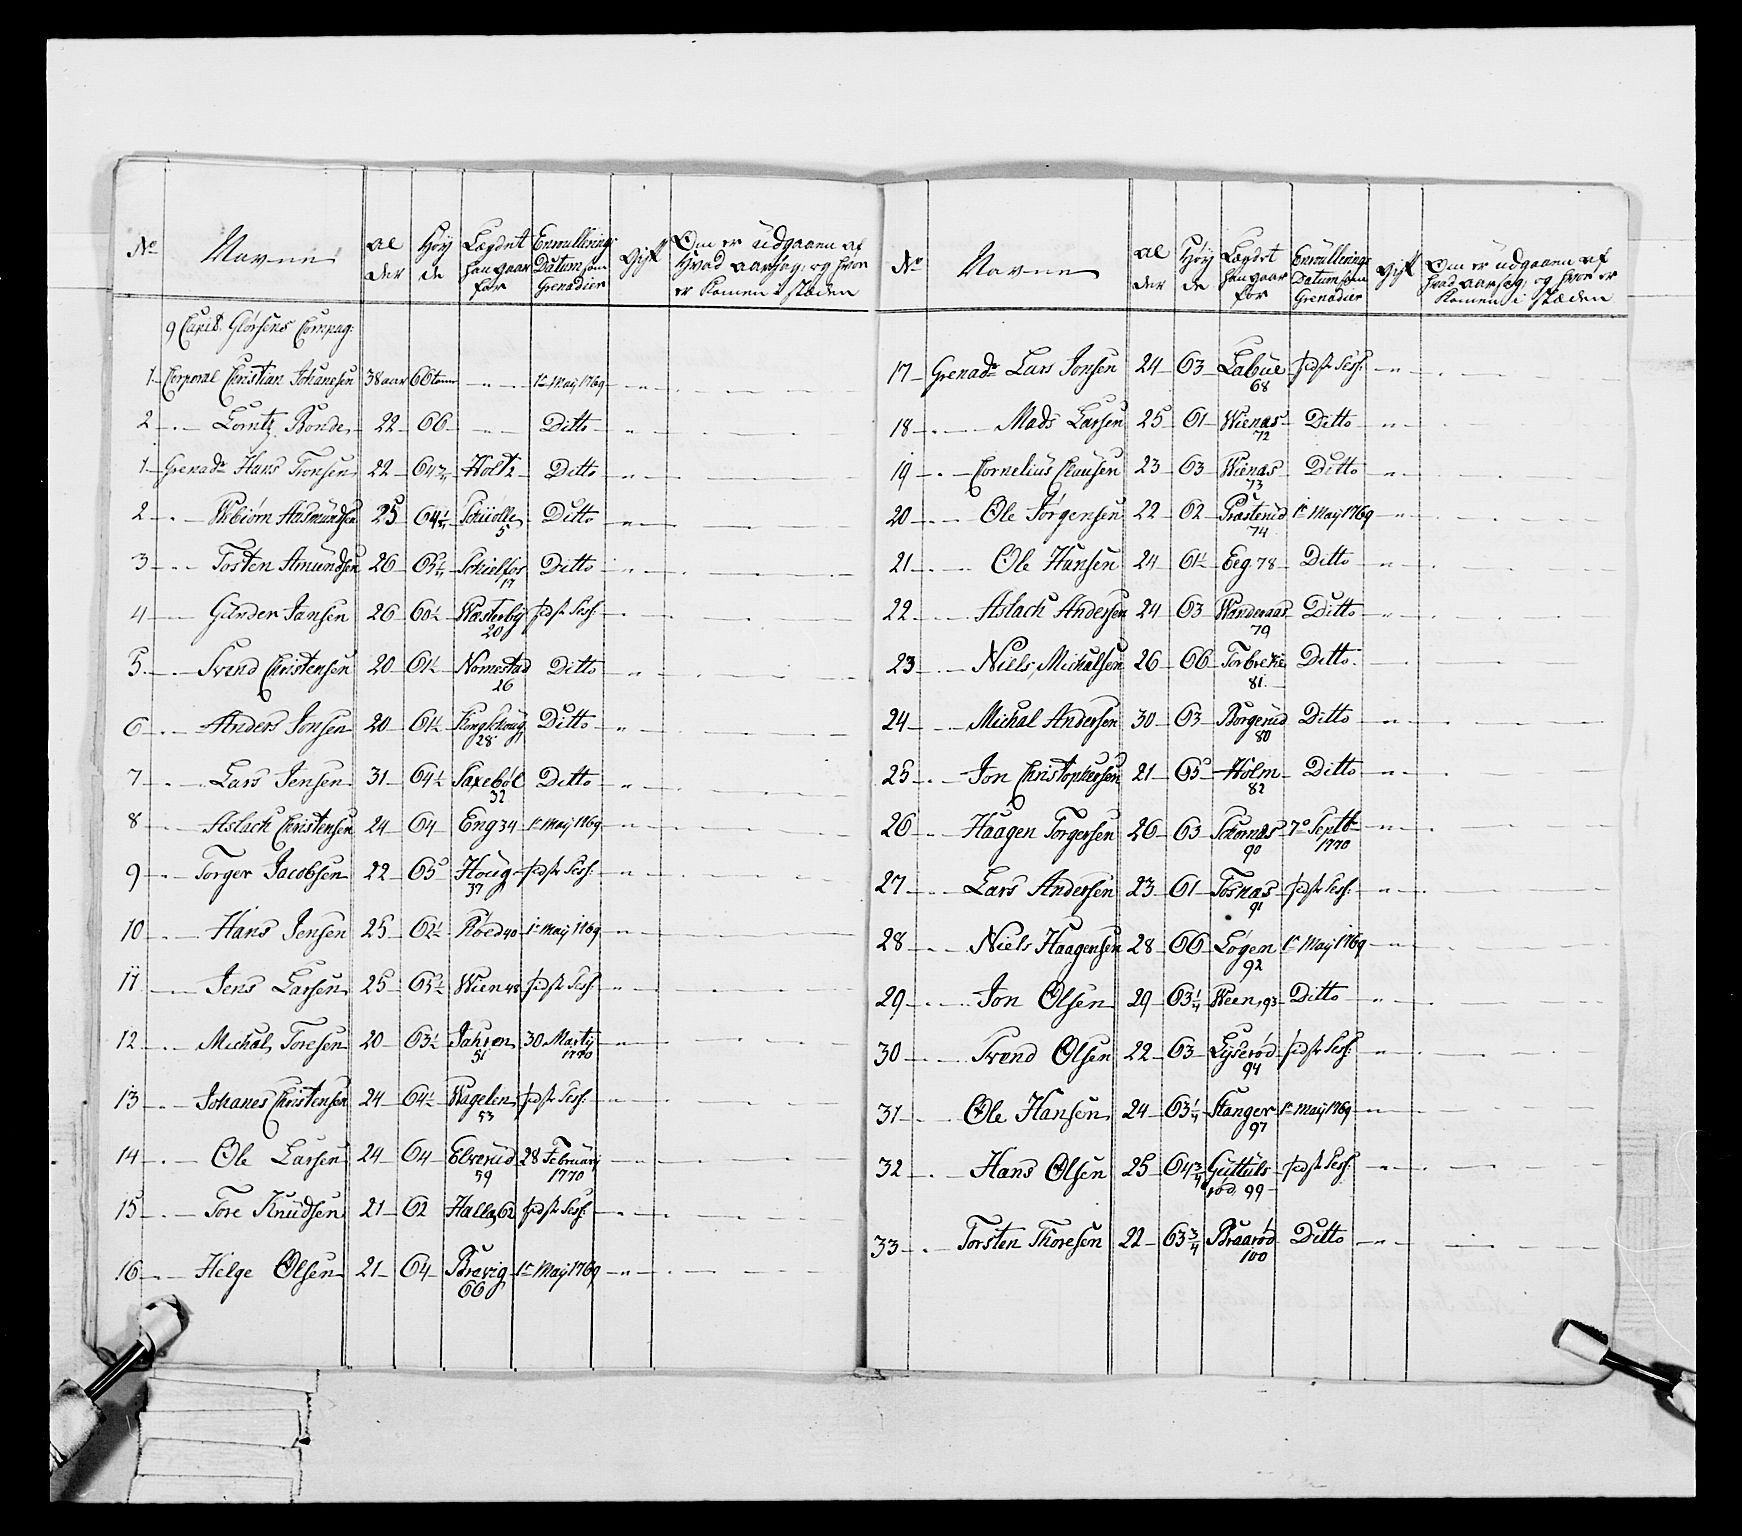 No Navne Al der Høy de Lægdet han gaar for Enroullerings Datum som Grenadier Gift Om er udgaaen af Hvad aarsag, og hvor er komen i stæden
9 Capit: Glørsens Compag:
1 Corporal Christian Johanesen 38 aar 66 tom̄er 1te Maij 1769
2 Lorntz Bonde 22 66 Ditto
1 Grenadr Hans Tronsen 22 64 3/4 Holt 2 Ditto
2 Webiørn Aasmundsen 25 64 1/4 Schiølle 5 Ditto
3 Tosten Amundsen 26 Schielfos 17 Ditto
4 Gunder Jansen 26 60 1/2 Wæsterbÿ 20 sidste Sess:
5 Svend Christensen 20 61 1/2 Nomestad 26 Ditto
6 Anders Jonsen 20 61 1/2 28 Ditto
7 Lars Jensen 31 64 1/2 Saxebøl 32 Ditto
8 Aslach Christensen 24 64 Eng 34 1te Maij 1769
9 Torger Jacobsen 22 65 Houg 37 sidste Sess:
10 Hans Jensen 25 62 1/2 Røed 40 1te Maij 1769
11 Jens Larsen 25 Wien 48 sidste Sess:
12 Michal Toresen 20 63 1/2 Jahren 51 30 Martij 1770
13 Johanes Christensen 24 64 1/2 Wagelen 53 sidste Sess:
14 Ole Larsen 24 64 Elverud 59 28 Februarij 1770
15 Tore Knudsen 21 62 Halle 62 sidste Sess:
16 Helge Olsen 21 64 Brevig 66 1te Maij 1769
No Navne Al der Høy de Lægdet han gaar for Enroullerings Datum som Grenadier Gift Om er udgaaen af hvad aarsag, og hvor er komen i stæden
17 Grenadr Lars Jonsen 24 63 Labue 68 sidste Sess:
18 Mads Larsen 25 61 Wienæs 72 Ditto
19 Cornelius Clausen 23 63 Wienæs 73 Ditto
20 Ole Jørgensen 22 62 Præsterud 74 1te Maij 1769
21 Ole Hansen 24 61 1/2 Eeg 78 Ditto
22 Aslach Andersen 24 63 Wanderaas 79 Ditto
23 Niels Michalsen 26 66 Torbreche 81 Ditto
24 Michal Andersen 30 63 Borgerud 80 Ditto
25 Jon Christophersen 21 65 Holm 82 Ditto
26 Haagen Torgersen 26 63 Schornæs 90 7de Septb 1770
27 Lars Andersen 23 61 Tosnæs 91 sidste Sess:
28 Niels Haagensen 28 66 Løgen 92 1te Maij 1769
29 Jon Olsen 29 63 1/4 Ween 93 Ditto
30 Svend Olsen 22 63 Lyserød 94 sidste Sess:
31 Ole Hansen 24 63 1/4 Stanger 97 1te Maij 1769
32 Hans Olsen 25 64 3/4 Guttuls rød 99 sidste Sess:
33 Torsten Thoresen 22 63 3/4 Braarød 100 Ditto